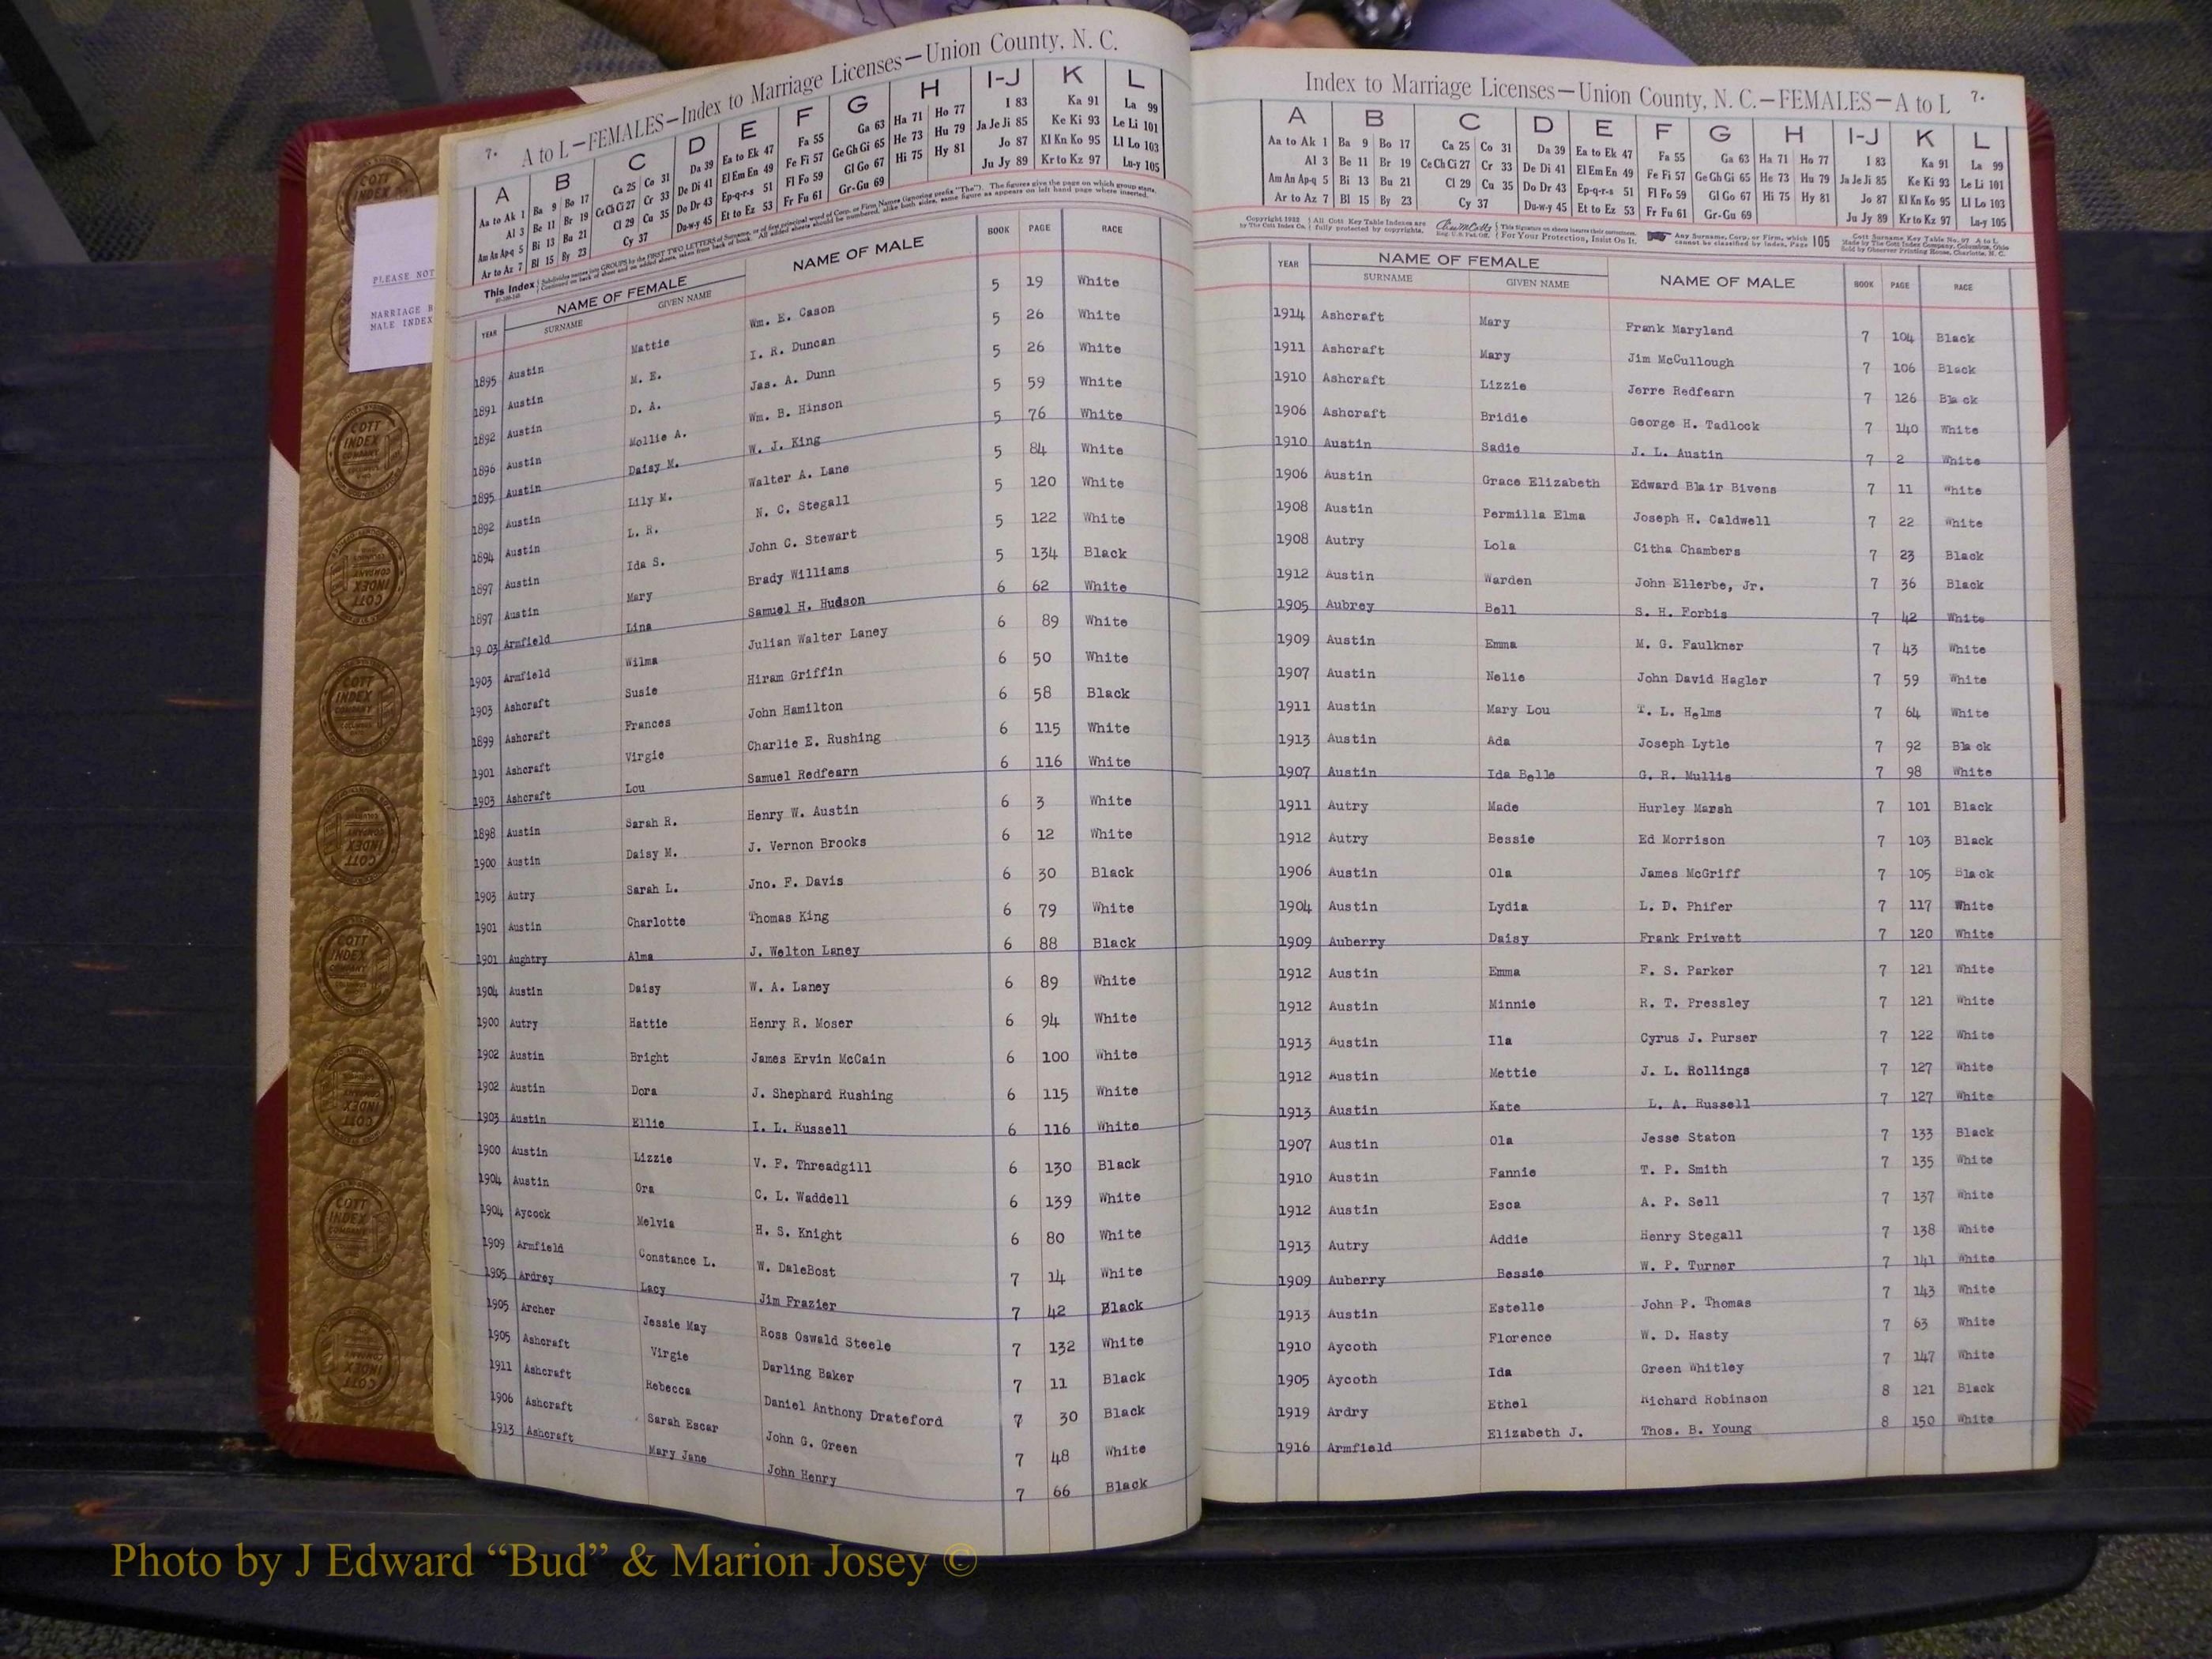 7. A to L—FEMALES—Index to Marriage Licenses—Union County, N. C.
A B C D E F G H I-J K L
Aa to Ak 1 Ba 9 Bo 17 Ca 25 Co 31 Da 39 Ea to Ek 47 Fa 55 Ga 63 Ha 71 Ho 77 I 83 Ka 91 La 99
Al 3 Be 11 Br 19 Ce Ch Ci 27 Cr 33 De Di 41 El Em En 49 Fe Fi 57 Ge Gh Gi 65 He 73 Hu 79 Ja Je Ji 85 Ke Ki 93 Le Li 101
Am An Ap-q 5 Bi 13 Bu 21 Cl 29 Cu 35 Do Dr 43 Ep-q-r-s 51 Fl Fo 59 Gl Go 67 Hi 75 Hy 81 Jo 87 Kl Kn Ko 95 Ll Lo 103
Ar to Az 7 Bl 15 By 23 Cy 37 Du-w-y 45 Et to Ez 53 Fr Fu 61 Gr-Gu 69 Ju Jy 89 Kr to Kz 97 Lu-y 105
This Index Subdivides names into GROUPS by the FIRST TWO LETTERS of Surname, or of first principal word of Corp. or Firm Names (ignoring prefix "The"). The figures give the page on which group starts.
Continued on back of sheet and on added sheets, taken from back of book. All added sheets should be numbered, alike both sides, same figure as appears on left hand page where inserted.
YEAR NAME OF FEMALE SURNAME GIVEN NAME NAME OF MALE BOOK PAGE RACE
1895 Austin Mattie Wm. E. Cason 5 19 White
1891 Austin M. E. I. R. Duncan 5 26 White
1892 Austin D. A. Jas. A. Dunn 5 26 White
1896 Austin Mollie A. Wm. B. Hinson 5 59 White
1895 Austin Daisy M. W. J. King 5 76 White
1892 Austin Lily M. Walter A. Lane 5 84 White
1894 Austin L. R. N. C. Stegall 5 120 White
1897 Austin Ida S. John C. Stewart 5 122 White
1897 Austin Mary Brady Williams 5 134 Black
19 03 Armfield Lina Samuel H. Hudson 6 62 White
1903 Armfield Wilma Julian Walter Laney 6 89 White
1903 Ashcraft Susie Hiram Griffin 6 50 White
1899 Ashcraft Frances John Hamilton 6 58 Black
1901 Ashcraft Virgie Charlie E. Rushing 6 115 White
1903 Ashcraft Lou Samuel Redfearn 6 116 White
1898 Austin Sarah R. Henry W. Austin 6 3 White
1900 Austin Daisy M. J. Vernon Brooks 6 12 White
1903 Autry Sarah L. Jno. F. Davis 6 30 Black
1901 Austin Charlotte Thomas King 6 79 White
1901 Aughtry Alma J. Welton Laney 6 88 Black
1904 Austin Daisy W. A. Laney 6 89 White
1900 Autry Hattie Henry R. Moser 6 94 White
1902 Austin Bright James Ervin McCain 6 100 White
1902 Austin Dora J. Shephard Rushing 6 115 White
1903 Austin Ellie I. L. Russell 6 116 White
1900 Austin Lizzie V. P. Threadgill 6 130 Black
1904 Austin Ora C. L. Waddell 6 139 White
1904 Aycock Melvia H. S. Knight 6 80 White
1909 Armfield Constance L. W. DaleBost 7 14 White
1905 Ardrey Lacy Jim Frazier 7 42 Black
1905 Archer Jessie May Ross Oswald Steele 7 132 White
1905 Ashcraft Virgie Darling Baker 7 11 Black
1911 Ashcraft Rebecca Daniel Anthony Drateford 7 30 Black
1906 Ashcraft Sarah Escar John G. Green 7 48 White
1913 Ashcraft Mary Jane John Henry 7 66 Black
PLEASE NOT
MARRIAGE B
MALE INDEX
COTT INDEX COMPANY
Index to Marriage Licenses—Union County, N. C.—FEMALES—A to L 7.
A B C D E F G H I-J K L
Aa to Ak 1 Ba 9 Bo 17 Ca 25 Co 31 Da 39 Ea to Ek 47 Fa 55 Ga 63 Ha 71 Ho 77 I 83 Ka 91 La 99
Al 3 Be 11 Br 19 Ce Ch Ci 27 Cr 33 De Di 41 El Em En 49 Fe Fi 57 Ge Gh Gi 65 He 73 Hu 79 Ja Je Ji 85 Ke Ki 93 Le Li 101
Am An Ap-q 5 Bi 13 Bu 21 Cl 29 Cu 35 Do Dr 43 Ep-q-r-s 51 Fl Fo 59 Gl Go 67 Hi 75 Hy 81 Jo 87 Kl Kn Ko 95 Ll Lo 103
Ar to Az 7 Bl 15 By 23 Cy 37 Du-w-y 45 Et to Ez 53 Fr Fu 61 Gr-Gu 69 Ju Jy 89 Kr to Kz 97 Lu-y 105
Copyright 1932 All Cott Key Table Indexes are This Signature on sheets insures their correctness. Any Surname, Corp. or Firm, which 105 Cott Surname Key Table No. 97 A to L
by The Cott Index Co. fully protected by copyrights. For Your Protection, Insist On It. cannot be classified by Index, Page Made by The Cott Index Company, Columbus, Ohio
Sold by Observer Printing House, Charlotte, N. C.
YEAR NAME OF FEMALE SURNAME GIVEN NAME NAME OF MALE BOOK PAGE RACE
1914 Ashcraft Mary Frank Maryland 7 104 Black
1911 Ashcraft Mary Jim McCullough 7 106 Black
1910 Ashcraft Lizzie Jerre Redfearn 7 126 Black
1906 Ashcraft Bridie George H. Tadlock 7 140 White
1910 Austin Sadie J. L. Austin 7 2 White
1906 Austin Grace Elizabeth Edward Blair Bivens 7 11 White
1908 Austin Permilla Elma Joseph H. Caldwell 7 22 White
1908 Autry Lola Citha Chambers 7 23 Black
1912 Austin Warden John Ellerbe, Jr. 7 36 Black
1905 Aubrey Bell S. H. Forbis 7 42 White
1909 Austin Emma M. G. Faulkner 7 43 White
1907 Austin Nelie John David Hagler 7 59 White
1911 Austin Mary Lou T. L. Helms 7 64 White
1913 Austin Ada Joseph Lytle 7 92 Black
1907 Austin Ida Belle G. R. Mullis 7 98 White
1911 Autry Made Hurley Marsh 7 101 Black
1912 Autry Bessie Ed Morrison 7 103 Black
1906 Austin Ola James McGriff 7 105 Black
1904 Austin Lydia L. D. Phifer 7 117 White
1909 Auberry Daisy Frank Privett 7 120 White
1912 Austin Emma F. S. Parker 7 121 White
1912 Austin Minnie R. T. Pressley 7 121 White
1913 Austin Ila Cyrus J. Purser 7 122 White
1912 Austin Mettie J. L. Rollings 7 127 White
1913 Austin Kate L. A. Russell 7 127 White
1907 Austin Ola Jesse Staton 7 133 Black
1910 Austin Fannie T. P. Smith 7 135 White
1912 Austin Esca A. P. Sell 7 137 White
1913 Autry Addie Henry Stegall 7 138 White
1909 Auberry Bessie W. P. Turner 7 141 White
1913 Austin Estelle John P. Thomas 7 143 White
1910 Aycoth Florence W. D. Hasty 7 63 White
1905 Aycoth Ida Green Whitley 7 147 White
1919 Ardry Ethel Richard Robinson 8 121 Black
1916 Armfield Elizabeth J. Thos. B. Young 8 150 White
Photo by J Edward “Bud” & Marion Josey ©